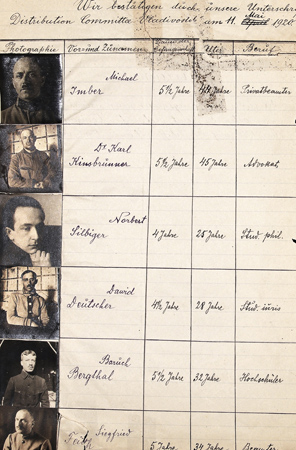 Wir bestätigen durch unsere Unterschri
Distribution Committe Vladivostok am 11. Mai April 1920.
Photographie Vor- und Zuname Dauer der Gefangenschaft Alter Beruf
Michael
Imber 5½ Jahre 44 Jahre Privatbeamter
Dr Karl
Kinsbrunner 5½ Jahre 45 Jahre Advokat
Norbert
Silbiger 4 Jahre 25 Jahre Stud. phil.
Dawid
Deutscher 4½ Jahre 28 Jahre Stud. iuris
Baruch
Bergthal 5½ Jahre 32 Jahre Hochschüler
Siegfried
5 Jahre 34 Jahre Beamter